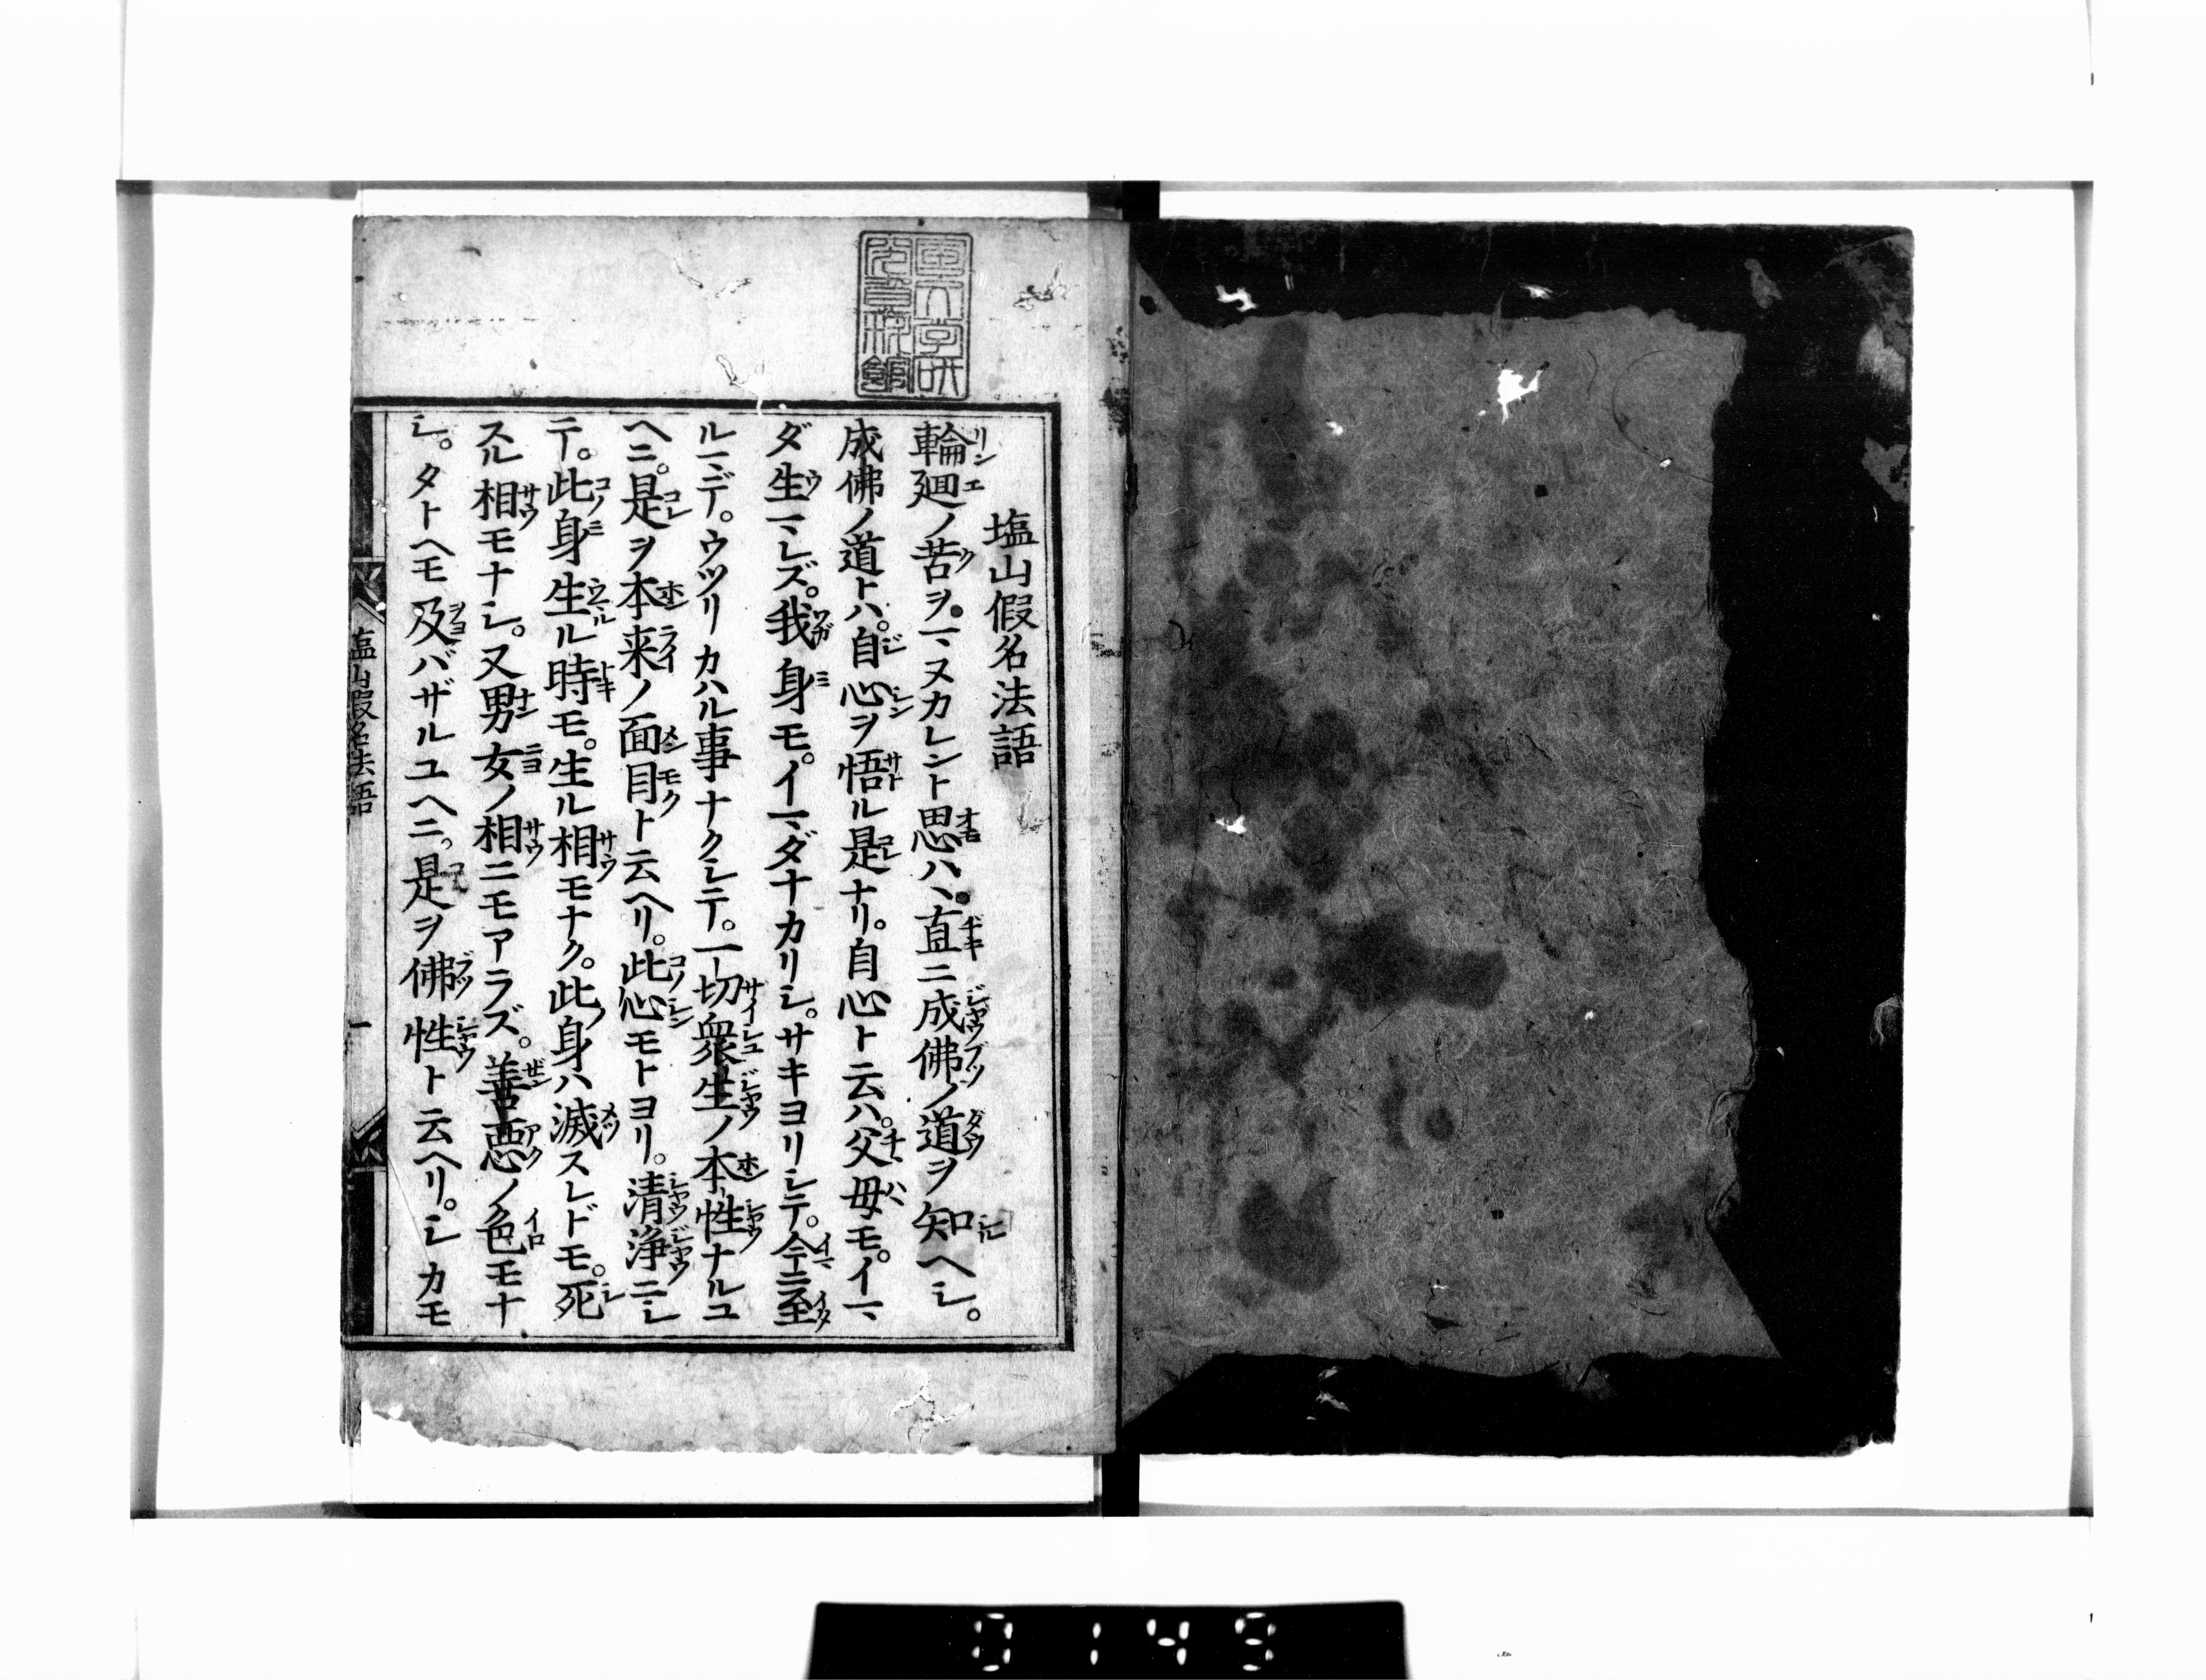 塩山假名法語
輪廻ノ苦ヲ。マヌカレント思ハヽ。直ニ成佛ノ道ヲ知ヘシ。
成佛ノ道トハ。自心ヲ悟ル是ナリ。自心ト云ハ。父母モ。イマ
ダ生マレズ。我身モ。イマダナカリシ。サキヨリシテ。今ニ至
ルマデ。ウツリカハル事ナクシテ。一切衆生ノ本性ナルユ
ヘニ。是ヲ本来ノ面目ト云ヘリ。此心モトヨリ。清浄ニシ
テ。此身生ル時モ。生ル相モナク。此身ハ滅スレドモ。死
スル相モナシ。又男女ノ相ニモアラズ。善惡ノ色モナ
シ。タトヘモ及バザルユヘニ。是ヲ佛性ト云ヘリ。シカモ
塩山假名法語
一
國文学研
究資料館
0149